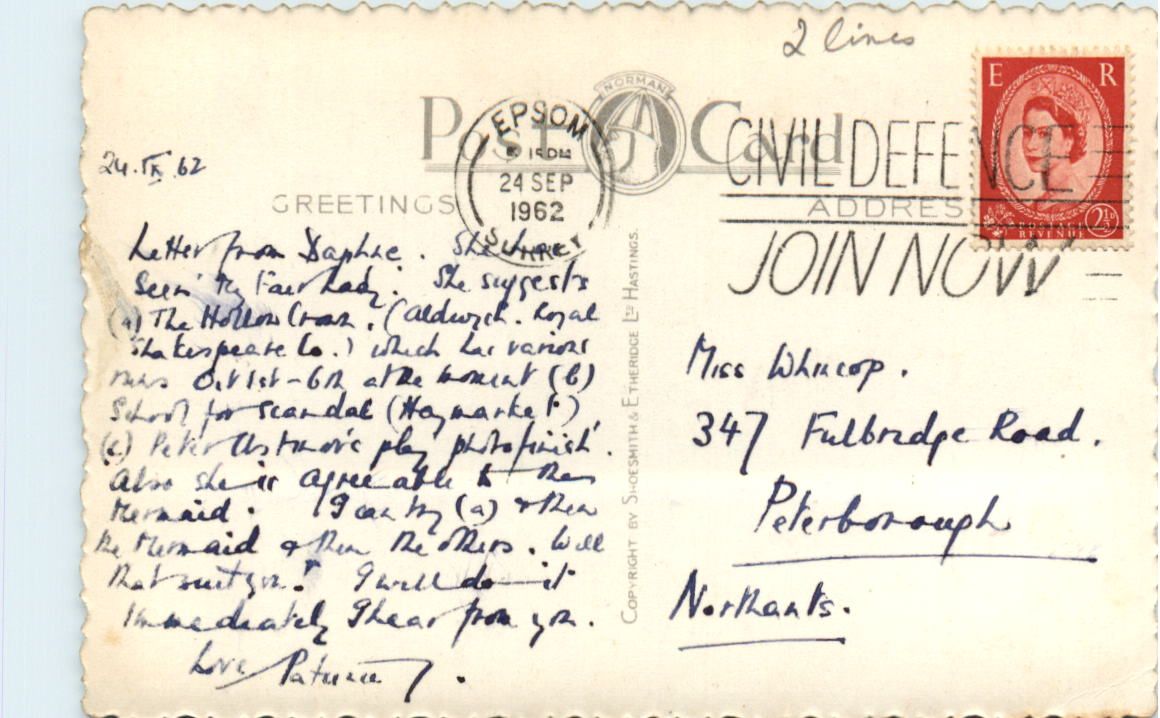 2 lines
NORMAN
Post Card
EPSOM
24 SEP
1962
SURREY
CIVIL DEFENCE
JOIN NOW
E R
POSTAGE
REVENUE
2½D
24.IX.62
GREETINGS
ADDRES
Letter from Daphne. She has
seen My Fair Lady. She suggests
(a) The Hollow Crown. (Aldwych. Royal
Shakespeare Co.) which has various
runs Oct 1st-6th at the moment (b)
School for Scandal (Haymarket)
(c) Peter Ustinov's play 'photofinish'.
Also she is agreeable to the
Mermaid. I can try (a) & then
the Mermaid & then the others. Will
that suit you? I will do it
immediately I hear from you.
Love Patience
COPYRIGHT BY SHOESMITH & ETHERIDGE LTD HASTINGS.
Miss Whincop.
347 Fulbridge Road.
Peterborough
Northants.